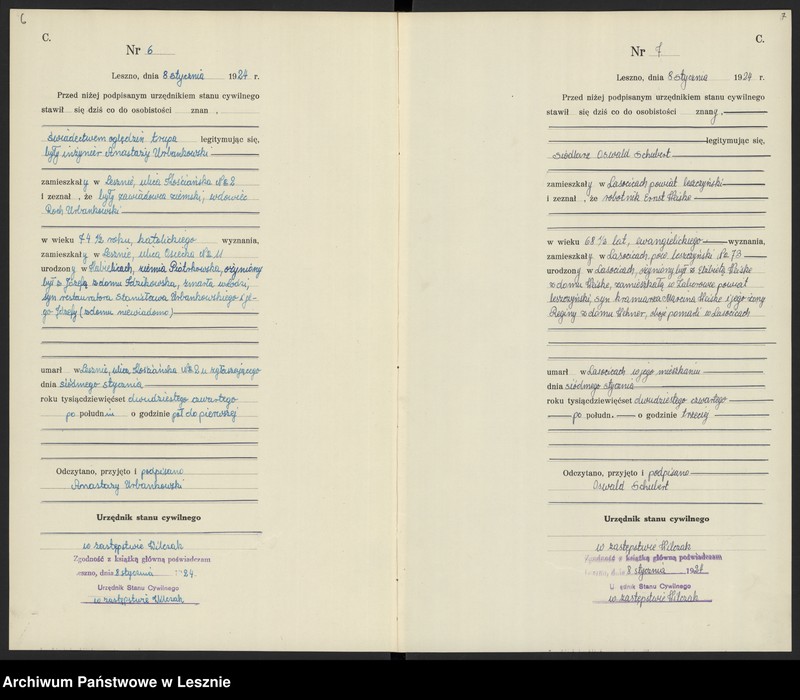 6
C.
Nr 6
Leszno, dnia 8 stycznia 1924 r.
Przed niżej podpisanym urzędnikiem stanu cywilnego
stawił się dziś co do osobistości znan ,
świadectwem oględzin trupa legitymując się,
były inżynier Anastazy Urbankowski
zamieszkały w Lesznie, ulica Kościańska № 2
i zeznał , że były zawiadowca ziemski, wdowiec
Roch Urbankowski
w wieku 74 ½ roku, katolickiego wyznania,
zamieszkały w Lesznie, ulica Osiecka № 11
urodzony w ziemia Piotrkowska, ożyniony
był z Józefą z domu zmarłą w Łodzi,
syn restauratora Stanisława Urbankowskiego i je-
go Józefy (z domu niewiadomo)
umarł w Lesznie, ulica Kościańska № 2 u zgłaszającego
dnia siódmego stycznia
roku tysiącdziewięćset dwudziestego czwartego
po południu o godzinie pół do pierwszej
Odczytano, przyjęto i podpisano
Anastazy Urbankowski
Urzędnik stanu cywilnego
w zastępstwie Wilczak
Zgodność z książką główną poświadczam
eszno, dnia 8 stycznia 1924.
Urzędnik Stanu Cywilnego
w zastępstwie Wilczak
7
C.
Nr 7
Leszno, dnia 8 stycznia 1924 r.
Przed niżej podpisanym urzędnikiem stanu cywilnego
stawił się dziś co do osobistości znany ,
legitymując się,
siodlarz Oswald Schubert
zamieszkały w Lasocicach powiat leszczyński
i zeznał , że robotnik Ernst Hiske
w wieku 68 ½ lat, ewangielickiego wyznania,
zamieszkały w Lasocicach, pow. leszczyński № 73
urodzony w Lasocicach, ożyniony był z Elżbietą Hiske
z domu Hiske, zamieszkałą w Zaborowie powiat
leszczyński, syn kramarza Marcina Hiske i jego żony
Reginy z domu oboje pomarli w Lasocicach
umarł w Lasocicach w jego mieszkaniu
dnia siódmego stycznia
roku tysiącdziewięćset dwudziestego czwartego
po połudn. o godzinie trzeciej
Odczytano, przyjęto i podpisano
Oswald Schubert
Urzędnik stanu cywilnego
w zastępstwie Wilczak
Zgodność z książką główną poświadczam
dnia 8 stycznia 1924
Urzędnik Stanu Cywilnego
w zastępstwie Wilczak
Archiwum Państwowe w Lesznie